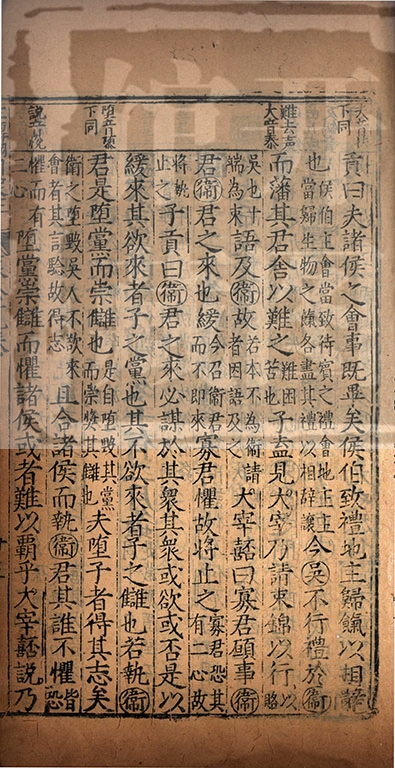 下同
貢曰夫諸侯之會事既畢矣侯伯致禮地主歸餼以相辭
也
侯伯主會當致待賓之禮會地主主
當歸生物之餼各盡其禮以相辭讓
今吳不行禮於衛
難去声
大音泰
而藩其君舍以難之
難困
苦也
子盍見大宰乃請束錦以行
以
賂
吳也十
端為束
語及衛故
若本不為衛請
者因語及之
大宰嚭曰寡君願事衛
君衛君之來也緩
今召衛君
而不即來
寡君懼故將止之
寡君恐其
有二心故
將執
止之
子貢曰衛君之來必謀於其衆其衆或欲或否是以
緩來其欲來者子之黨也其不欲來者子之讎也若執衛
下同
君是墮黨而崇讎也
是自墮毀其黨
而崇獎其讎也
夫墮子者得其志矣
衛之墮毀吳人不欲來
會者其言驗故得志
且合諸侯而執衛君其誰不懼
皆
恐
懼而有
二心
墮黨崇讎而懼諸侯或者難以霸乎大宰嚭說乃